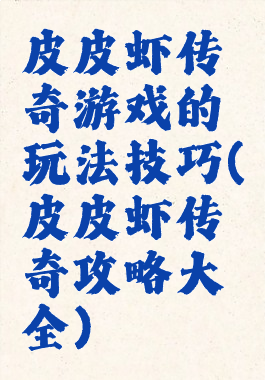 皮皮虾传
奇游戏的
玩法技巧(
皮皮虾传
奇攻略大
全)